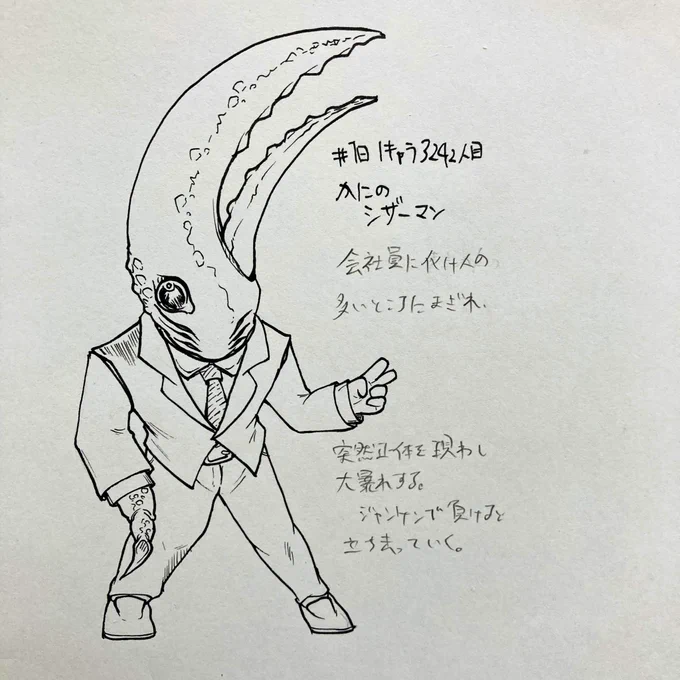 #1日1キャラ3242人目
かにの
シザーマン
会社員に化け人の
多いところにまぎれ、
突然正体を現わし
大暴れする。
ジャンケンで負けると
立ち去っていく。